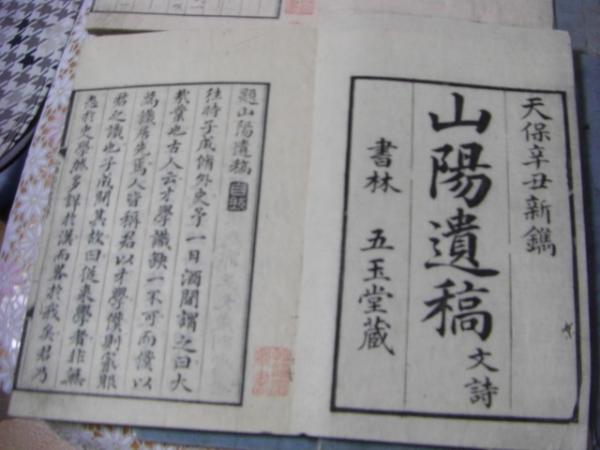 天保辛丑新鐫
山陽遺稿 詩文
書林 五玉堂蔵
題山陽遺稿
往時子成脩外史予一日酒間謂之曰大
哉業也古人云才學識缺一不可而僕以
爲識居先焉人皆稱君以才學僕則窃服
君之識也子成聞其故曰從來學者非無
志於史學然多詳於漢而畧於我矣君乃